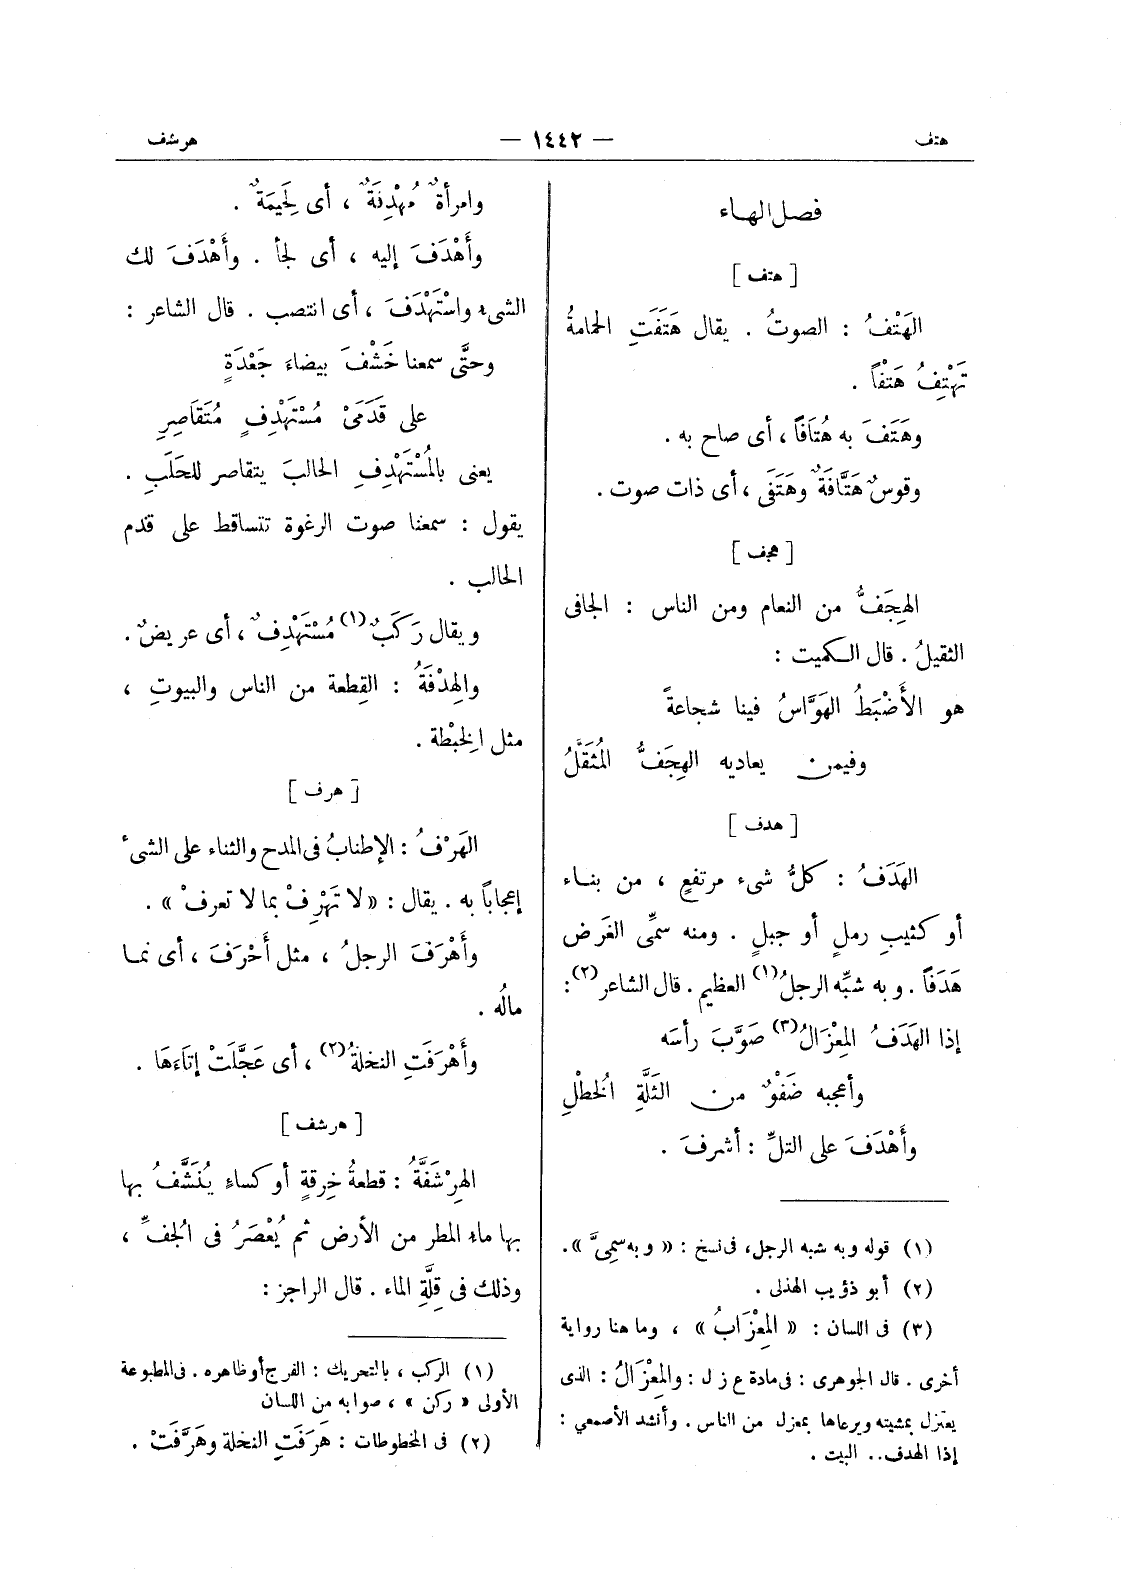 هتف — ١٤٤٢ — هرشف
فصل الهاء
[ هتف ]
الهَتْفُ : الصوتُ . يقال هَتَفَتِ الحمامةُ
تَهْتِفُ هَتْفاً .
وهَتَفَ به هُتَافاً ، أى صاح به .
وقوسٌ هَتَّافَةٌ وهَتَفَى ، أى ذات صوت .
[ هجف ]
الهِجَفُّ من النعام ومن الناس : الجافى
الثقيلُ . قال الكميت :
هو الأَضْبَطُ الهَوَّاسُ فينا شجاعةً
وفيمن يعاديه الهِجَفُّ المُثَقَّلُ
[ هدف ]
الهَدَفُ : كلُّ شىء مرتفعٍ ، من بناء
أو كثيبِ رملٍ أو جبلٍ . ومنه سمِّى الغَرَض
هَدَفاً . وبه شبِّه الرجلُ(١) العظيم . قال الشاعر(٢) :
إذا الهَدَفُ المِعْزَالُ(٣) صَوَّبَ رأسَه
وأعجبه ضَفْوٌ من الثَلَّةِ الخُطْلِ
وأَهْدَفَ على التلِّ : أشرفَ .
(١) قوله وبه شبه الرجل، فى نسخ : « وبه سمِىَّ ».
(٢) أبو ذؤيب الهذلى .
(٣) فى اللسان : « المِعْزَابُ » ، وما هنا رواية
أخرى . قال الجوهرى : فى مادة ع ز ل : والمِعْزَالُ : الذى
يعتزل بمشيته ويرعاها بمعزل من الناس . وأنشد الأصمعي :
إذا الهدف.. البيت .
وامرأةٌ مُهْدِفَةٌ ، أى لَحِيمَةٌ .
وأَهْدَفَ إليه ، أى لجأ . وأَهْدَفَ لك
الشىء واسْتَهْدَفَ ، أى انتصب . قال الشاعر :
وحتَّى سمعنا خَشْفَ بيضاءَ جَعْدَةٍ
على قَدَمَىْ مُسْتَهْدِفٍ مُتَقَاصِرِ
يعنى بالمُسْتَهْدِفِ الحالبَ يتقاصر للحَلَبِ .
يقول : سمعنا صوت الرغوة تتساقط على قدم
الحالب .
ويقال رَكَبٌ(١) مُسْتَهْدِفٌ ، أى عريضٌ .
والهِدْفَةُ : القِطعة من الناس والبيوتِ ،
مثل الخِبْطة .
[ هرف ]
الهَرْفُ : الإطنابُ فى المدح والثناء على الشىء
إعجاباً به . يقال : « لا تَهْرِفْ بما لا تعرفْ » .
وأَهْرَفَ الرجلُ ، مثل أَحْرَفَ ، أى نما
مالُه .
وأَهْرَفَتِ النخلةُ(٢) ، أى عَجَّلَتْ إتَاءَهَا .
[ هرشف ]
الهِرْشَفَّةُ : قطعةُ خِرقةٍ أو كساءٍ يُنَشَّفُ بها
بها ماء المطر من الأرض ثم يُعْصَرُ فى الجُفِّ ،
وذلك فى قِلَّةِ الماء . قال الراجز :
(١) الركب ، بالتحريك : الفرج أو ظاهره . فى المطبوعة
الأولى « ركن » ، صوابه من اللسان
(٢) فى المخطوطات : هَرَفَتِ النخلة وهَرَّفَتْ .